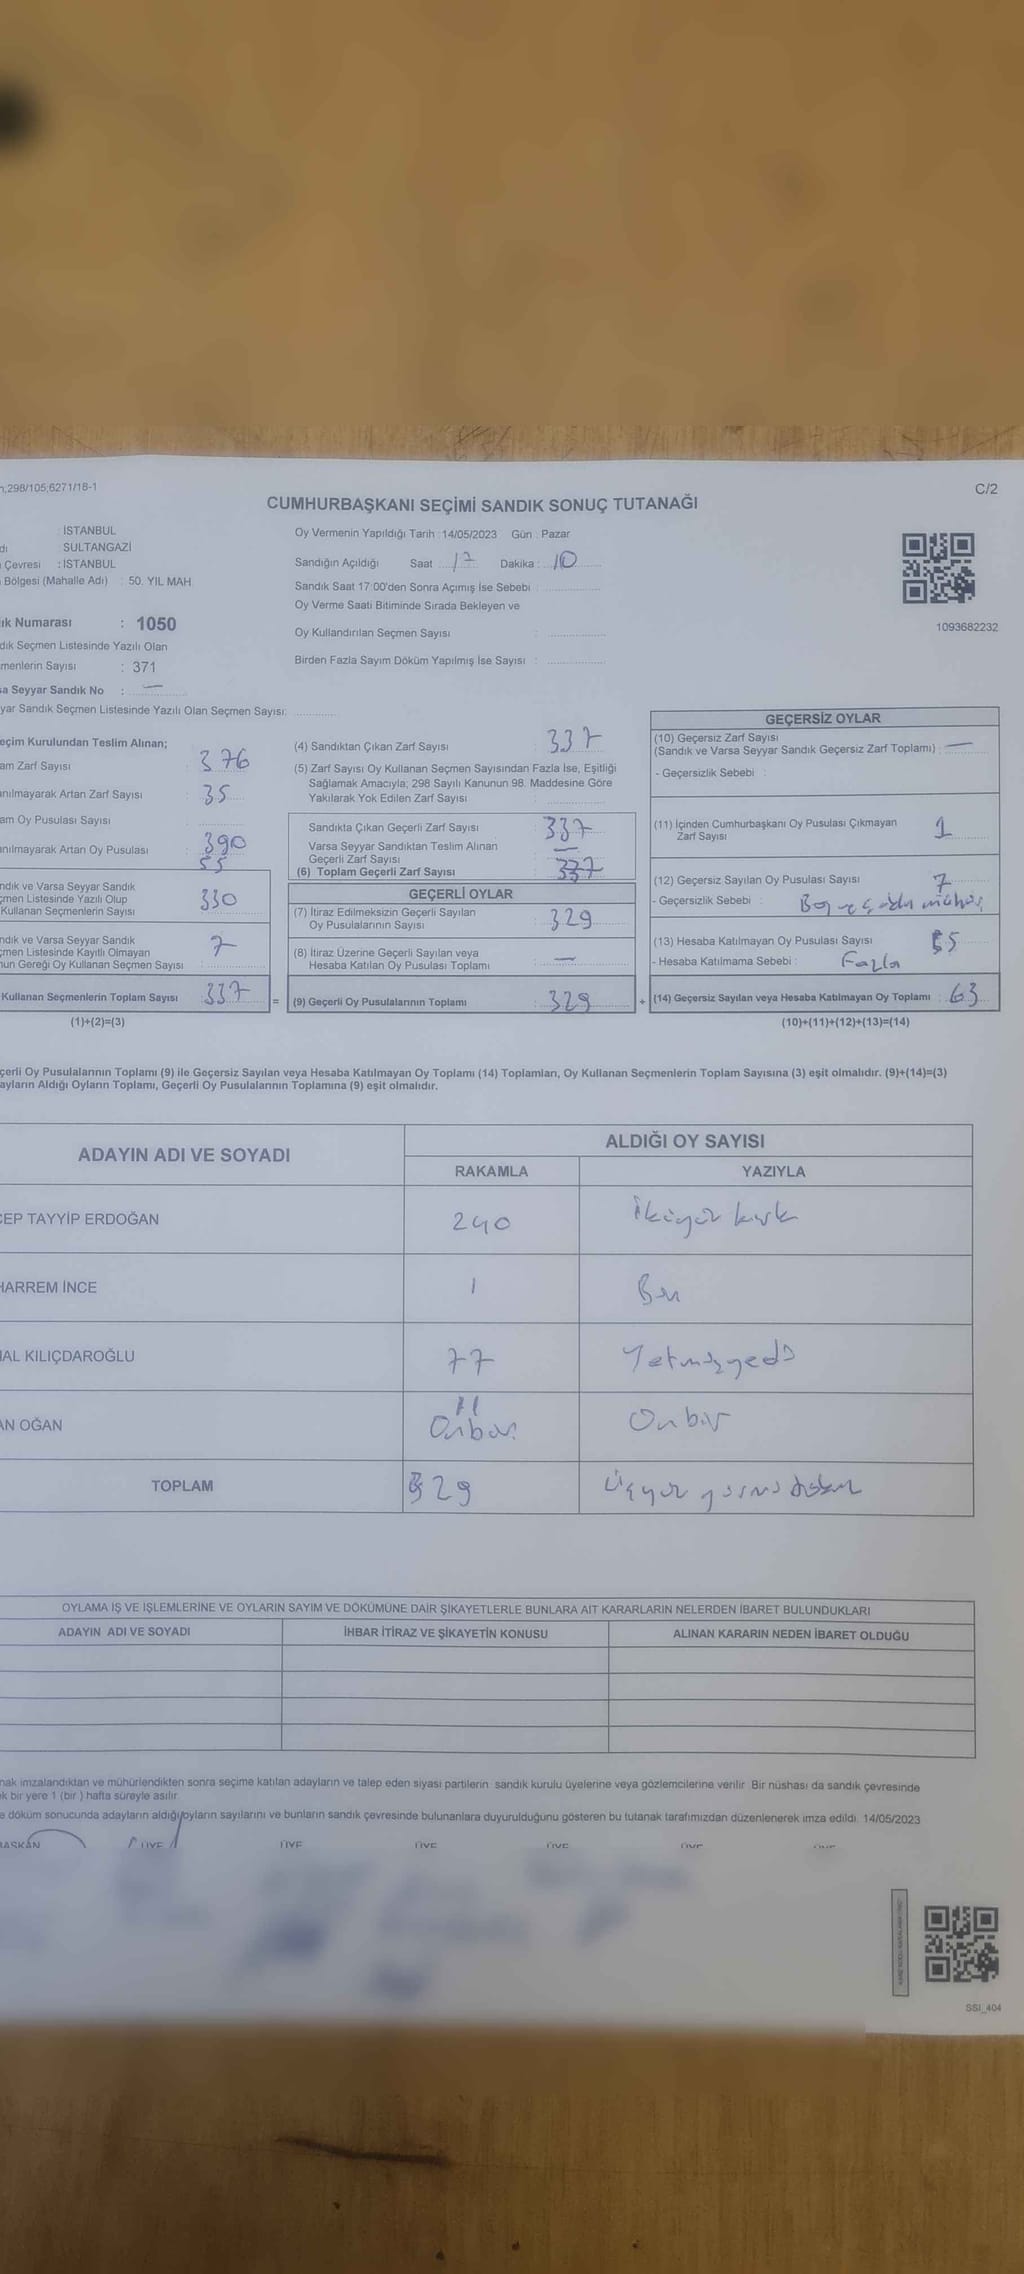 298/105;6271/18-1
C/2
CUMHURBAŞKANI SEÇİMİ SANDIK SONUÇ TUTANAĞI
: İSTANBUL
SULTANGAZİ
Çevresi : İSTANBUL
Bölgesi (Mahalle Adı) : 50. YIL MAH.
Numarası : 1050
Seçmen Listesinde Yazılı Olan
Sayısı : 371
Seyyar Sandık No : —
Sandık Seçmen Listesinde Yazılı Olan Seçmen Sayısı:
Oy Vermenin Yapıldığı Tarih : 14/05/2023 Gün : Pazar
Sandığın Açıldığı Saat : 17 Dakika : 10
Sandık Saat 17:00'den Sonra Açımış İse Sebebi :
Oy Verme Saati Bitiminde Sırada Bekleyen ve
Oy Kullandırılan Seçmen Sayısı :
Birden Fazla Sayım Döküm Yapılmış İse Sayısı :
1093682232
Kurulundan Teslim Alınan;
Zarf Sayısı : 376
Artan Zarf Sayısı : 35
Oy Pusulası Sayısı : 390
Artan Oy Pusulası : 55
ve Varsa Seyyar Sandık
Listesinde Yazılı Olup
Kullanan Seçmenlerin Sayısı 330
ve Varsa Seyyar Sandık
Listesinde Kayıtlı Olmayan
Gereği Oy Kullanan Seçmen Sayısı 7
Kullanan Seçmenlerin Toplam Sayısı 337 =
(1)+(2)=(3)
(4) Sandıktan Çıkan Zarf Sayısı : 337
(5) Zarf Sayısı Oy Kullanan Seçmen Sayısından Fazla İse, Eşitliği
Sağlamak Amacıyla; 298 Sayılı Kanunun 98. Maddesine Göre
Yakılarak Yok Edilen Zarf Sayısı :
Sandıkta Çıkan Geçerli Zarf Sayısı : 337
Varsa Seyyar Sandıktan Teslim Alınan
Geçerli Zarf Sayısı : —
(6) Toplam Geçerli Zarf Sayısı : 337
GEÇERLİ OYLAR
(7) İtiraz Edilmeksizin Geçerli Sayılan
Oy Pusulalarının Sayısı : 329
(8) İtiraz Üzerine Geçerli Sayılan veya
Hesaba Katılan Oy Pusulası Toplamı : —
(9) Geçerli Oy Pusulalarının Toplamı : 329 +
GEÇERSİZ OYLAR
(10) Geçersiz Zarf Sayısı
(Sandık ve Varsa Seyyar Sandık Geçersiz Zarf Toplamı) : —
- Geçersizlik Sebebi :
(11) İçinden Cumhurbaşkanı Oy Pusulası Çıkmayan
Zarf Sayısı : 1
(12) Geçersiz Sayılan Oy Pusulası Sayısı : 7
- Geçersizlik Sebebi :
(13) Hesaba Katılmayan Oy Pusulası Sayısı : 55
- Hesaba Katılmama Sebebi : Fazla
(14) Geçersiz Sayılan veya Hesaba Katılmayan Oy Toplamı : 63
(10)+(11)+(12)+(13)=(14)
Oy Pusulalarının Toplamı (9) ile Geçersiz Sayılan veya Hesaba Katılmayan Oy Toplamı (14) Toplamları, Oy Kullanan Seçmenlerin Toplam Sayısına (3) eşit olmalıdır. (9)+(14)=(3)
Aldığı Oyların Toplamı, Geçerli Oy Pusulalarının Toplamına (9) eşit olmalıdır.
ADAYIN ADI VE SOYADI
ALDIĞI OY SAYISI
RAKAMLA YAZIYLA
TAYYİP ERDOĞAN 240 İkiyüz kırk
İNCE 1 Bir
KILIÇDAROĞLU 77 Yetmişyedi
OĞAN 11 Onbir Onbir
TOPLAM 329 Üçyüz yirmi dokuz
OYLAMA İŞ VE İŞLEMLERİNE VE OYLARIN SAYIM VE DÖKÜMÜNE DAİR ŞİKAYETLERLE BUNLARA AİT KARARLARIN NELERDEN İBARET BULUNDUKLARI
ADAYIN ADI VE SOYADI İHBAR İTİRAZ VE ŞİKAYETİN KONUSU ALINAN KARARIN NEDEN İBARET OLDUĞU
imzalandıktan ve mühürlendikten sonra seçime katılan adayların ve talep eden siyasi partilerin sandık kurulu üyelerine veya gözlemcilerine verilir. Bir nüshası da sandık çevresinde
bir yere 1 (bir ) hafta süreyle asılır.
döküm sonucunda adayların aldığı oyların sayılarını ve bunların sandık çevresinde bulunanlara duyurulduğunu gösteren bu tutanak tarafımızdan düzenlenerek imza edildi. 14/05/2023
BAŞKAN ÜYE ÜYE ÜYE ÜYE ÜYE ÜYE
SSI_404